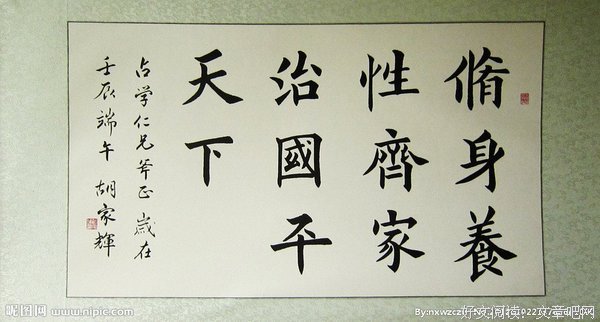 脩身養
性齊家
治國平
天下
占学仁兄斧正 歲在
壬辰端午 胡家輝
昵图网 www.nipic.com